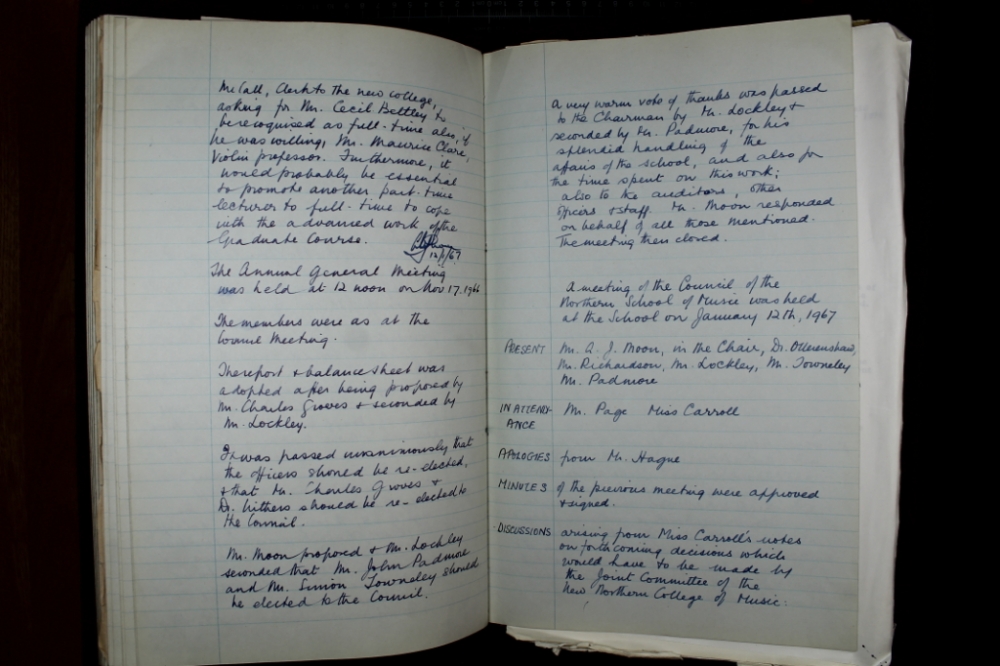 McCall, Clerk to the new college,
asking for Mr. Cecil Bettley to
be recognised as full-time also, if
he was willing, Mr. Maurice Clare,
Violin professor. Furthermore, it
would probably be essential
to promote another part-time
lecturer to full-time to cope
with the advanced work of the
Graduate Course.
12/1/67
The Annual General Meeting
was held at 12 noon on Nov 17. 1966
The members were as at the
Council Meeting.
The report & balance sheet was
adopted after being proposed by
Mr. Charles Groves & seconded by
Mr. Lockley.
It was passed unanimously that
the officers should be re-elected,
& that Mr. Charles Groves &
Dr. Withers should be re-elected to
the Council.
Mr. Moon proposed & Mr. Lockley
seconded that Mr. John Padmore
and Mr. Simon Towneley should
be elected to the Council.
A very warm vote of thanks was passed
to the Chairman by Mr. Lockley &
seconded by Mr. Padmore, for his
splendid handling of the
affairs of the school, and also for
the time spent on this work;
also to the auditors, other
officers & staff. Mr. Moon responded
on behalf of all those mentioned.
The meeting then closed.
A meeting of the Council of the
Northern School of Music was held
at the School on January 12th, 1967
PRESENT Mr. A. J. Moon, in the Chair, Dr. Ollerenshaw,
Mr. Richardson, Mr. Lockley, Mr. Towneley
Mr. Padmore
IN ATTEND- Mr. Page Miss Carroll
ANCE
APOLOGIES from Mr. Hague
MINUTES of the previous meeting were approved
& signed.
DISCUSSIONS arising from Miss Carroll's notes
on forthcoming decisions which
would have to be made by
the Joint Committee of the
New Northern College of Music: